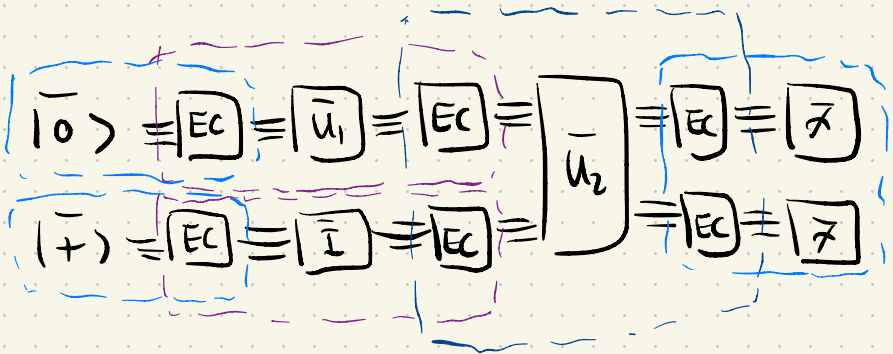 |0̄⟩ EC Ū₁ EC Ū₂ EC
|+̄⟩ EC Ī EC EC